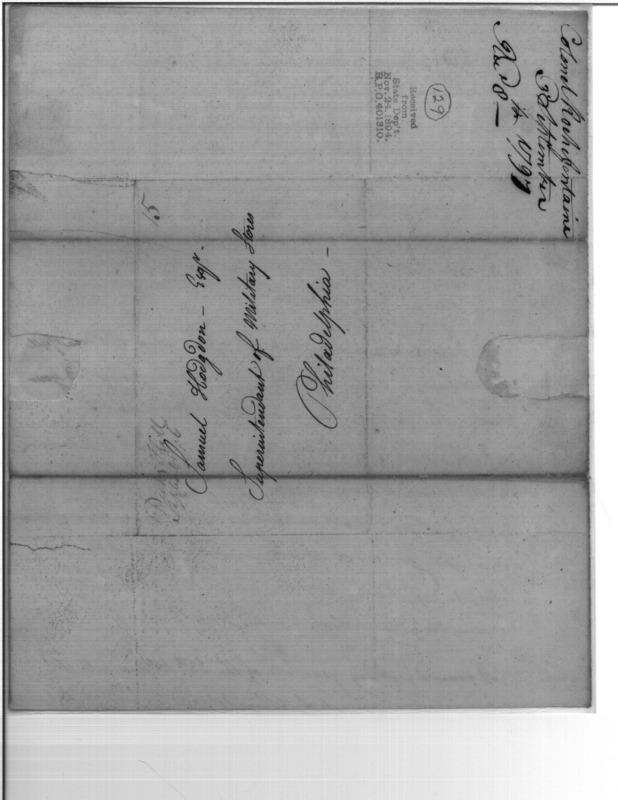 Colonel Rochefontaine
4. 1797
129
Received
from
State Dep't.
Nov. 24, 1894.
R.P.O. 401810.
15
Samuel Hodgdon - Esqr.
Superintendant of Military Stores
Philadelphia -